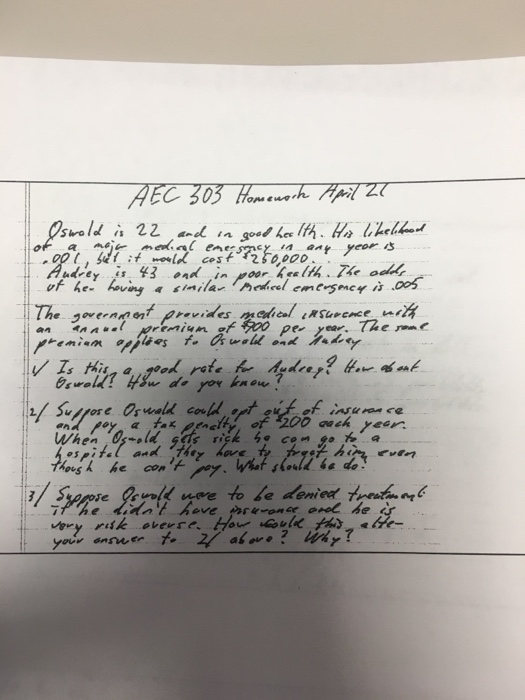 AEC 303 Homework April 21
Oswald is 22 and in good health. His likelihood
of a major medical emergency in any year is
.001, but it would cost $250,000.
Audrey is 43 and in poor health. The odds
of her having a similar medical emergency is .005
The government provides medical insurance with
an annual premium of $900 per year. The same
premium applies to Oswald and Audrey
1/ Is this a good rate for Audrey? How about
Oswald? How do you know?
2/ Suppose Oswald could opt out of insurance
and pay a tax penalty of $200 each year.
When Oswald gets sick he can go to a
hospital and they have to treat him even
though he can't pay. What should he do?
3/ Suppose Oswald were to be denied treatment
if he didn't have insurance and he is
very risk averse. How would this alter
your answer to 2/ above? Why?